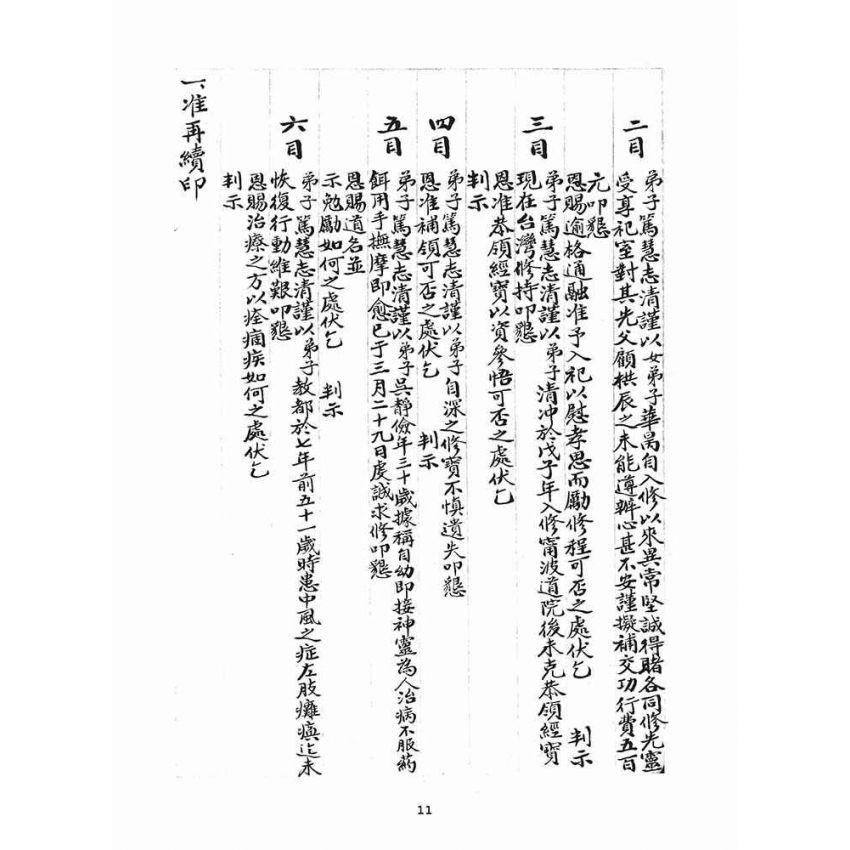 二目
弟子篤慧志清謹以女弟子華昺自入修以來異常堅誠得睹各同修先靈
受享祀室對其先父顧栱辰之未能遵辦心甚不安謹擬補交功行費五百
元叩懇
恩賜逾格通融准予入祀以慰孝思而勵修程可否之處伏乞 判示
三目
弟子篤慧志清謹以弟子清冲於戊子年入修甯波道院後未克恭領經寶
現在台灣修持叩懇
恩准恭領經寶以資參悟可否之處伏乞
判示
四目
弟子篤慧志清謹以弟子自深之修寶不慎遺失叩懇
恩准補領可否之處伏乞 判示
五目
弟子篤慧志清謹以弟子吳靜儉年三十歲據稱自幼即接神靈為人治病不服葯
餌用手撫摩即愈已于三月二十九日虔誠求修叩懇
恩賜道名並
示勉勵如何之處伏乞 判示
六目
弟子篤慧志清謹以弟子教都於七年前五十一歲時患中風之症左肢癱瘓迄未
恢復行動維艱叩懇
恩賜治療之方以痊痼疾如何之處伏乞
判示
一、准再續印
11